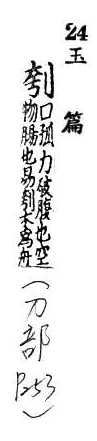 24
玉篇
刳口孤力破腹也空
物腸也易刳木為舟
(刀部
P253)